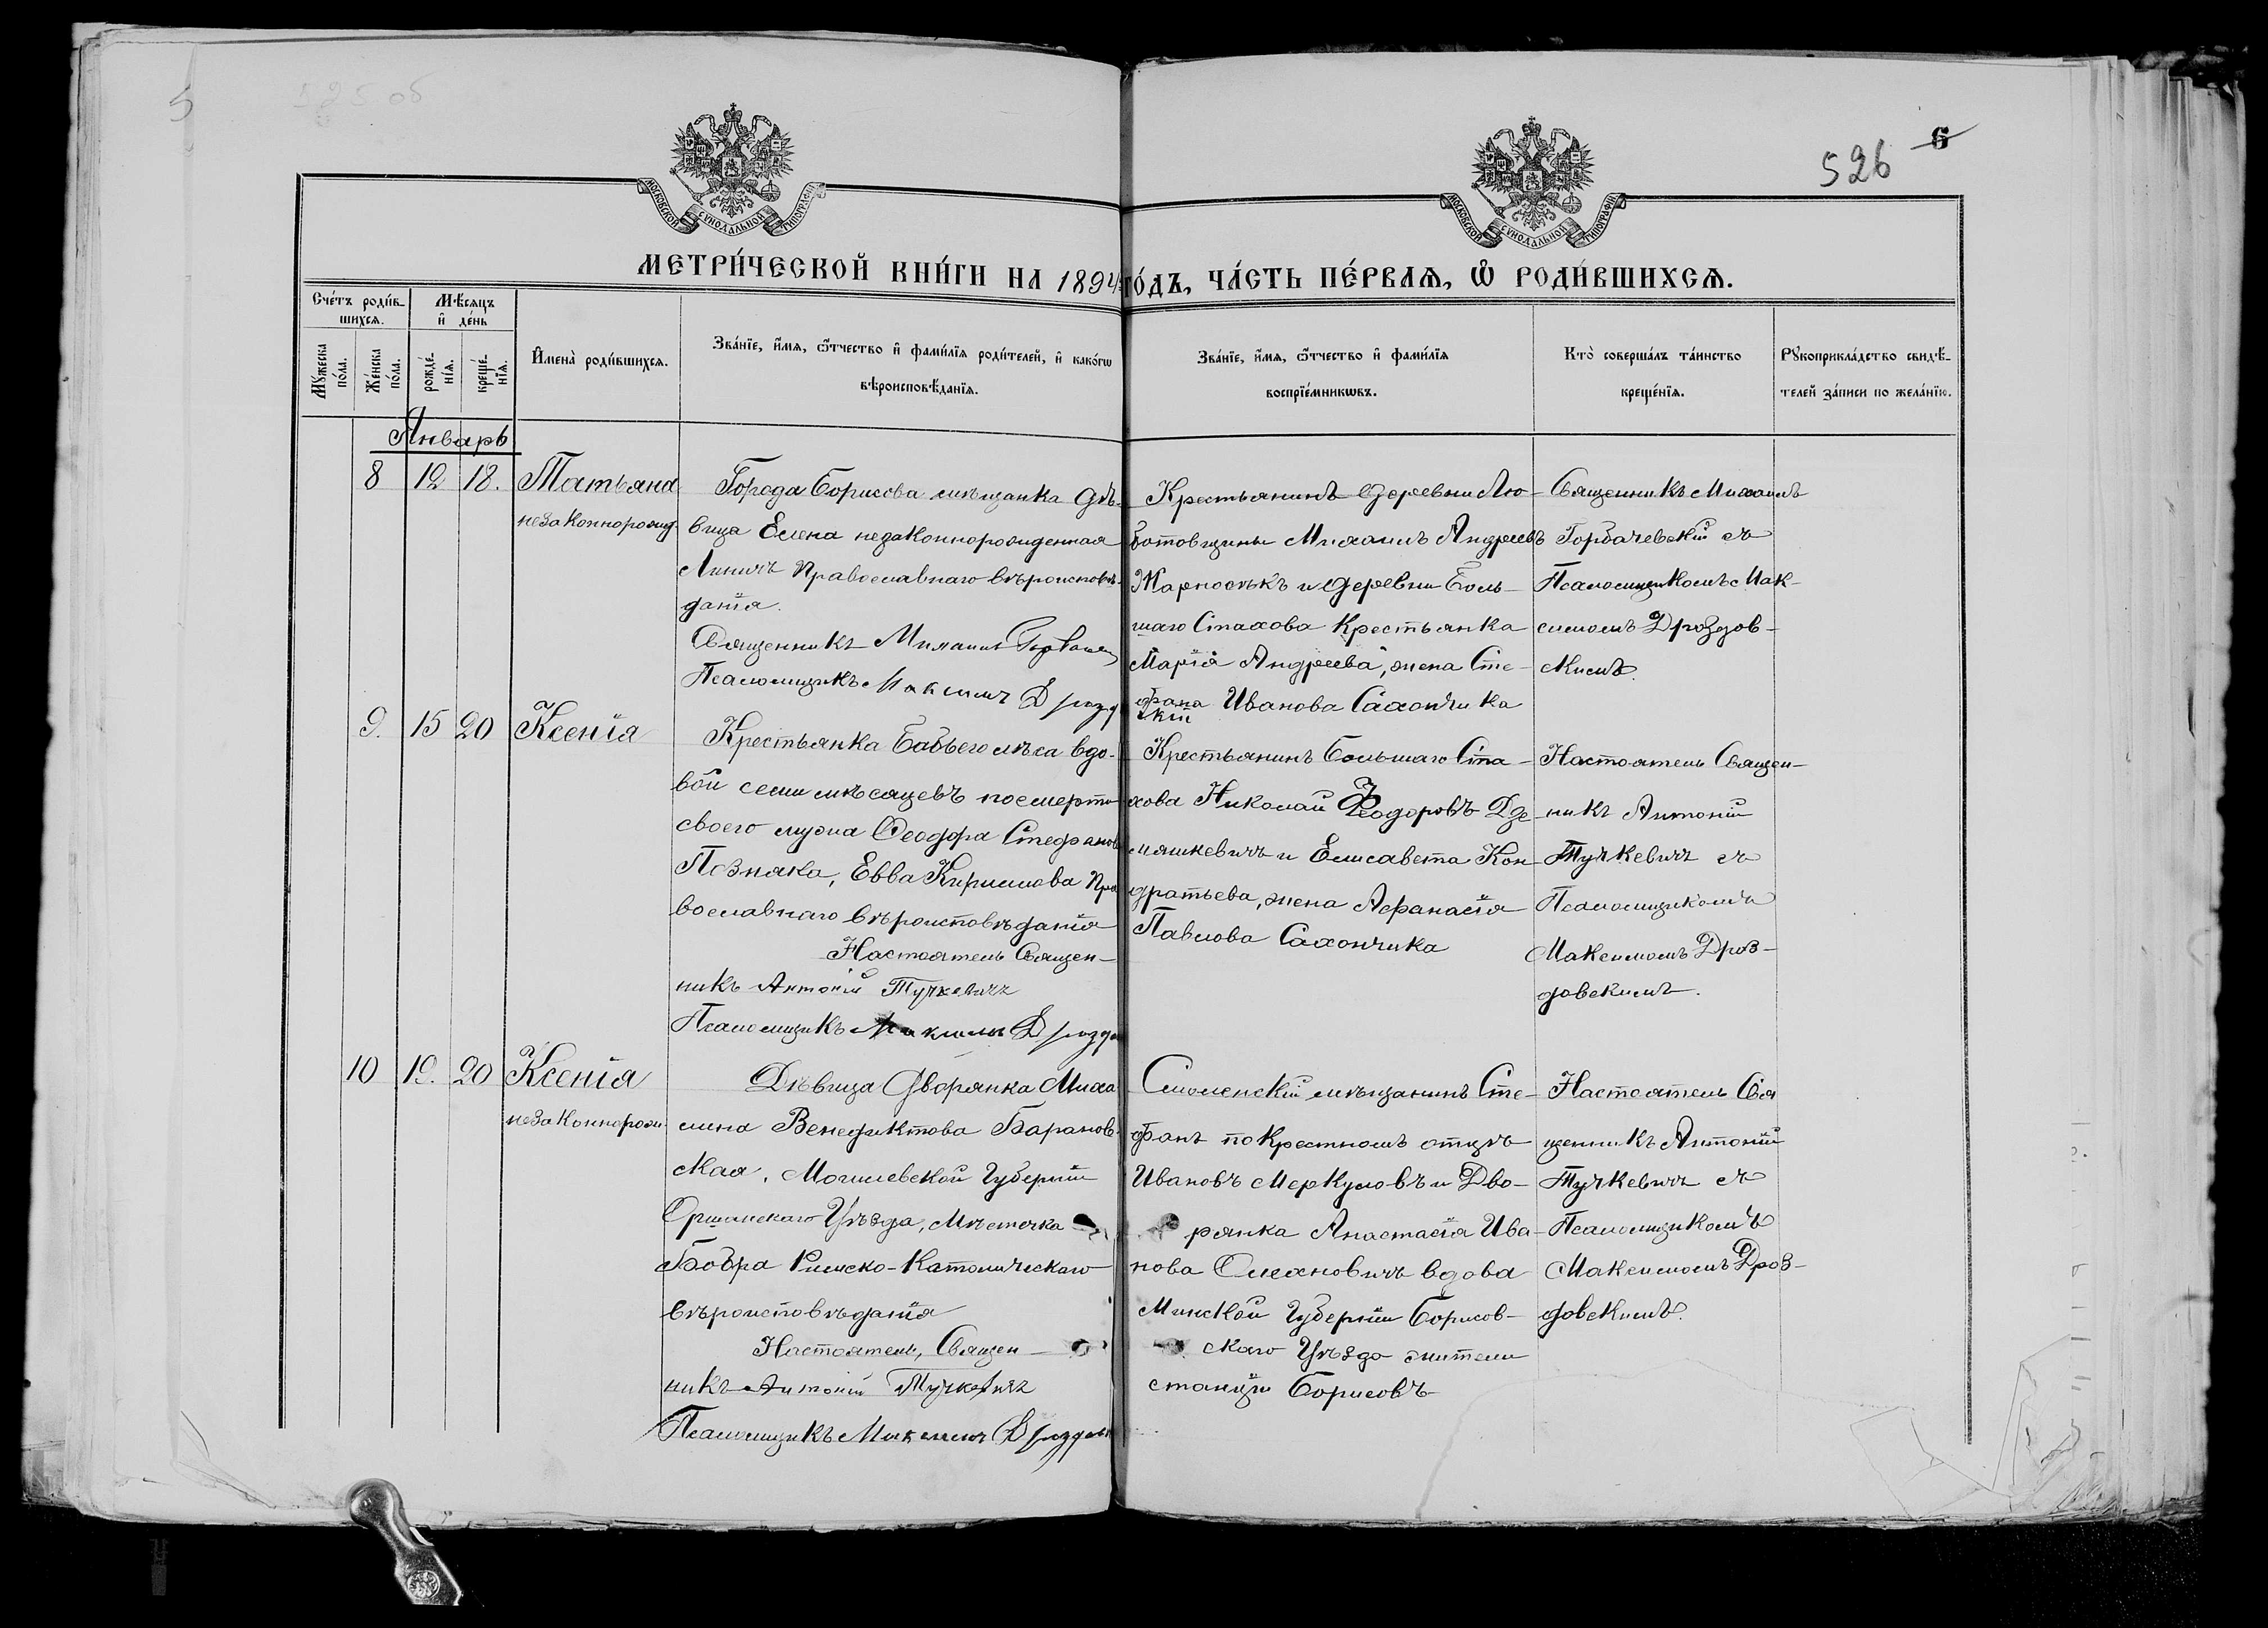 5
525 об
526 6
МОСКОВСКОЙ СѴНОДАЛЬНОЙ ТИПОГРАФІИ
МОСКОВСКОЙ СѴНОДАЛЬНОЙ ТИПОГРАФІИ
МЕТРИ́ЧЕСКОЙ КНИ́ГИ НА 1894 ГО́ДЪ, ЧА́СТЬ ПЕ́РВАѦ, Ѡ҆ РОДИ́ВШИХСѦ.
Сче́тъ роди́в-
шихсѧ.
Мѣ́сѧцъ
и҆ де́нь
Мꙋ́жеска
по́ла.
Же́нска
по́ла.
рожде́-
нїѧ.
креще́-
нїѧ.
И҆мена̀ роди́вшихсѧ.
Зва́нїе, и҆́мѧ, ѻ҆́тчество и҆ фами́лїѧ роди́телей, и҆ како́гѡ
вѣроисповѣ́данїѧ.
Зва́нїе, и҆́мѧ, ѻ҆́тчество и҆ фами́лїѧ
воспрїе́мникѡвъ.
Кто̀ соверша́лъ та́инство
креще́нїѧ.
Рꙋкоприкла́дство свидѣ́-
телей за́писи по жела́нїю.
Январь
8 12 18. Татьяна
незаконнорожд.
Города Борисова мѣщанка дѣ-
вица Елена незаконнорожденная
Линичъ Православнаго вѣроисповѣ-
данія.
Священникъ Михаилъ Горбачев
Псаломщикъ Максимъ Дроздов
скій
Крестьянинъ деревни Лю-
ботовщины Михаилъ Андреевъ
Жарносѣкъ и деревни Боль-
шаго Стахова Крестьянка
Марія Андреева, жена Сте-
фана Иванова Сахончика
Священникъ Михаилъ
Горбачевскій съ
Псаломщикомъ Мак-
симомъ Дроздов-
скимъ.
9. 15 20 Ксенія
Крестьянка Бабьего лѣса вдо-
вой семи мѣсяцевъ посмерти
своего мужа Ѳеодора Стефанова
Позняка, Евва Кириллова Пра
вославнаго вѣроисповѣданія
Настоятель Священ-
никъ Антоній Тучкевичъ
Псаломщикъ Максимъ Дроздо
Крестьянинъ Большаго Ста-
хова Николай Ѳеодоровъ Дзе-
мяшкевичъ и Елисавета Кон
дратьева, жена Афанасія
Павлова Сахончика
Настоятель Священ-
никъ Антоній
Тучкевичъ съ
Псаломщикомъ
Максимомъ Дроз-
довскимъ.
10 19. 20 Ксенія
незаконнорожд.
Дѣвица Дворянка Миха
лина Венедиктова Баранов-
ская, Могилевской Губерніи
Оршанскаго Уѣзда, Мѣстечка
Бобра Римско-Католическаго
вѣроисповѣданія
Настоятель, Священ-
никъ Антоній Тучкевичъ
Псаломщикъ Максимъ Дроздов
Смоленскій мѣщанинъ Сте-
фанъ по Крестномъ отцѣ
Ивановъ Меркуловъ и Дво-
рянка Анастасія Ива-
нова Смахновичъ вдова
Минской Губерніи Борисов-
скаго Уѣзда жители
станціи Борисовъ
Настоятель Свя
щенникъ Антоній
Тучкевичъ съ
Псаломщикомъ
Максимомъ Дроз-
довскимъ.